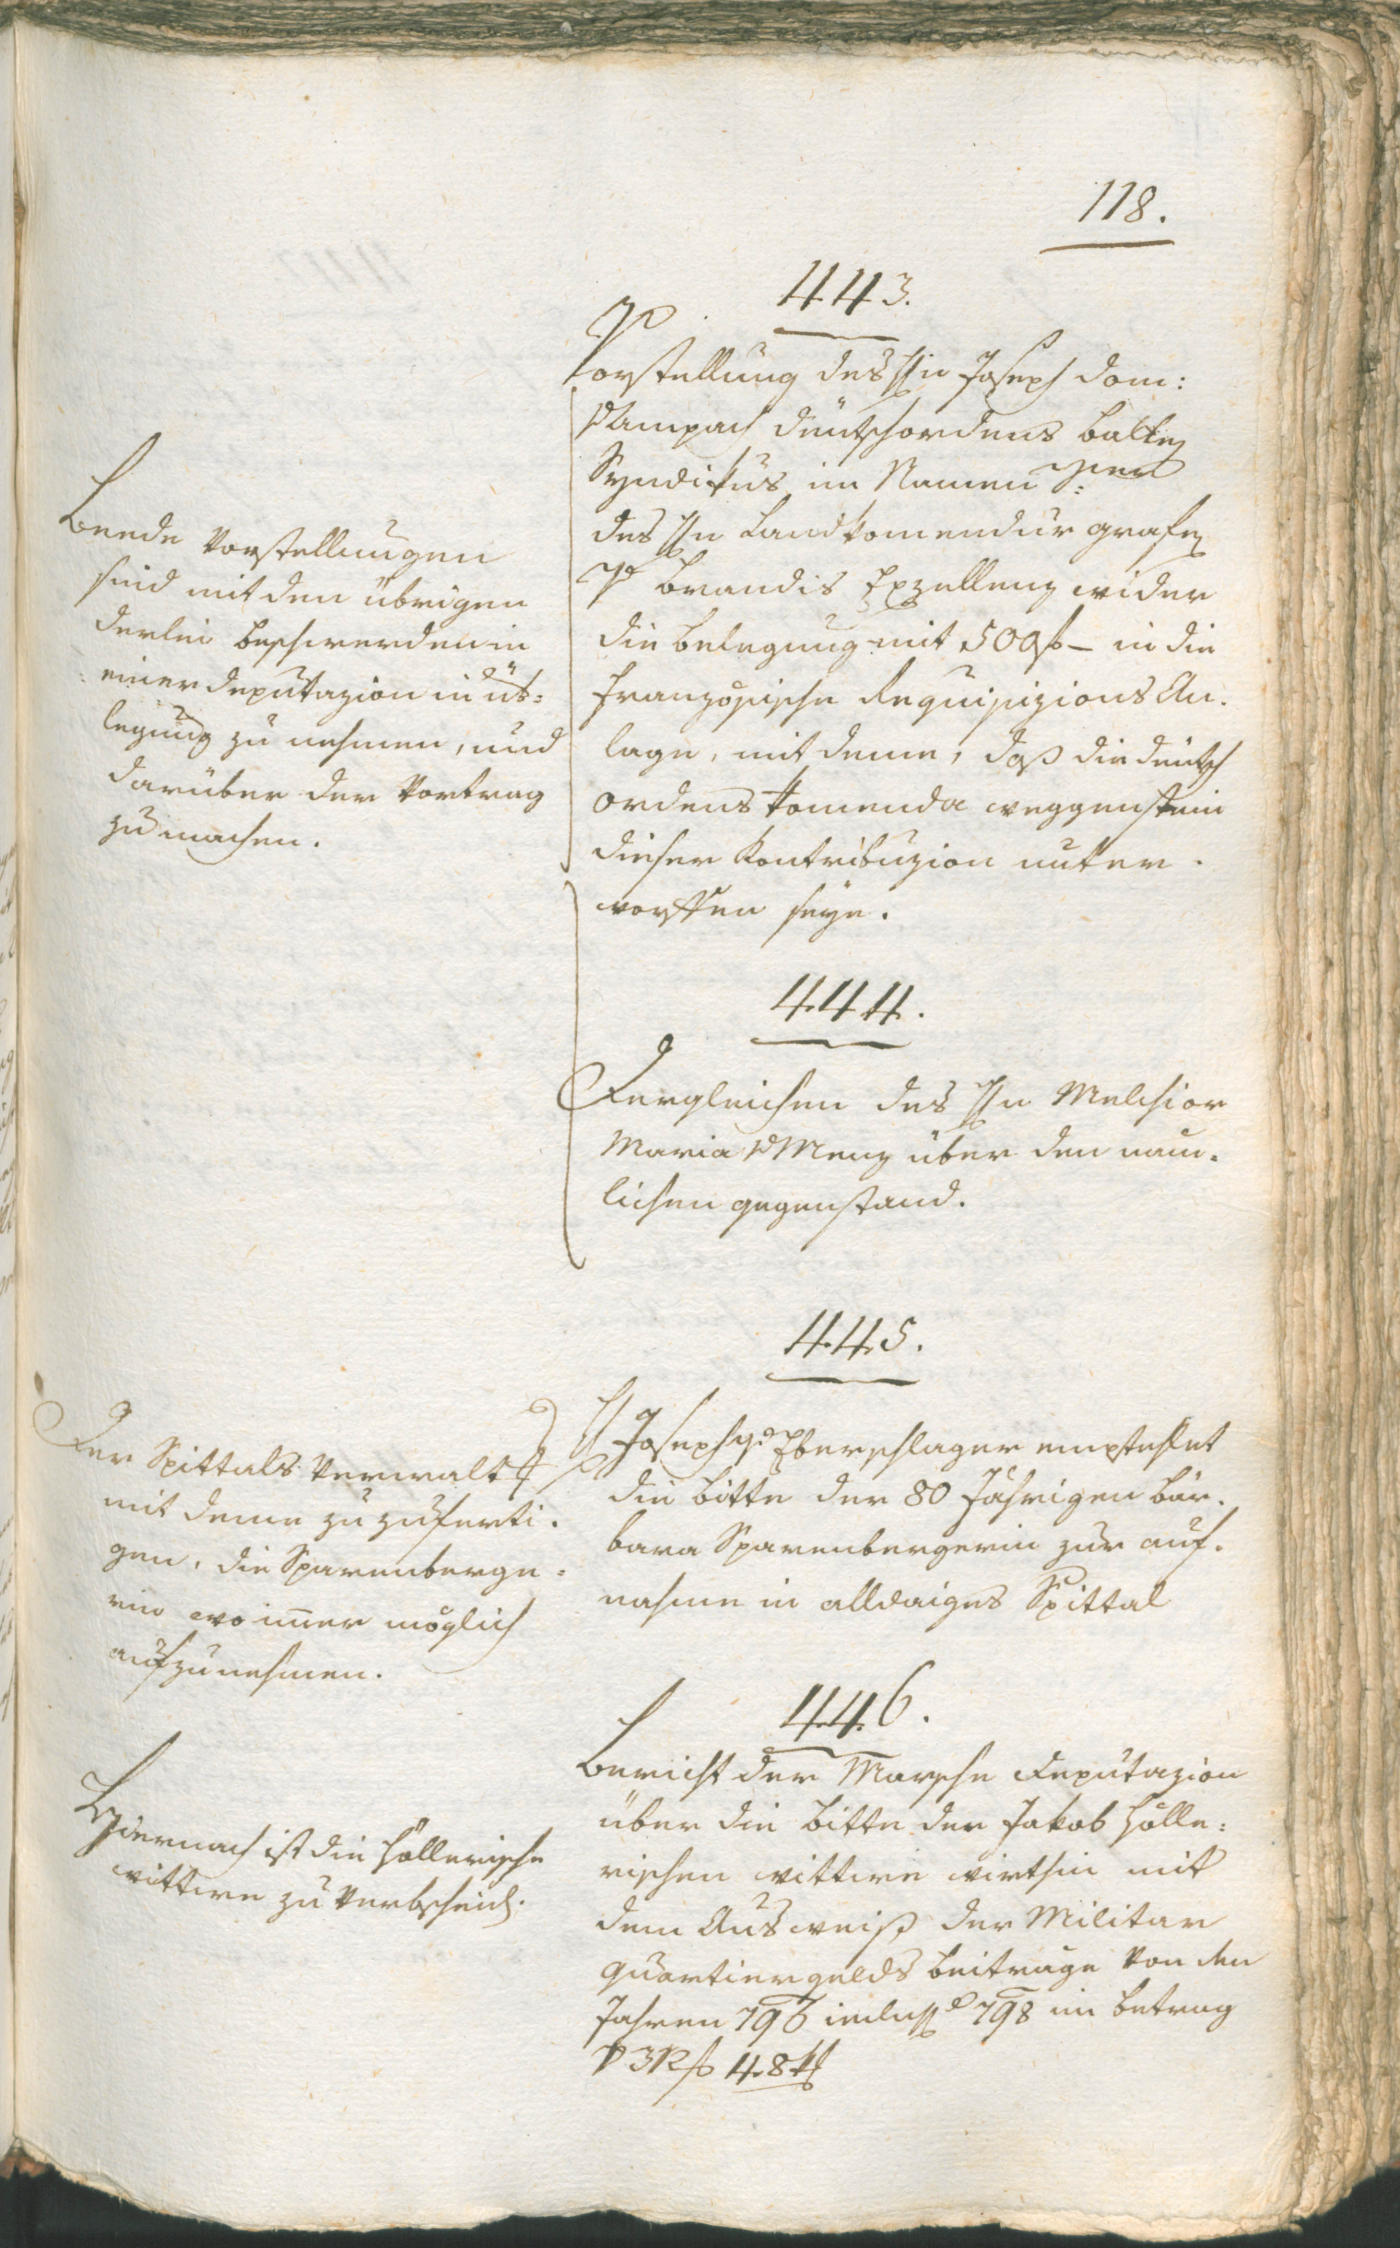 118.
443.
Vorstellung des Hn Joseph Dom:
v Ampach deutschordens Balley
Syndikus im Namen
des Hn Landkomendur Grafen
v Brandis Exzellenz wider
die Belegung mit 500 f – in die
französische Requisizions An-
lage, mit deme, daß die deutsch
ordens Komenda weggenstein
dieser Kontribuzion unter-
worffen seye.
Beede Vorstellungen
sind mit den übrigen
derlei Beschwerden in
einer Deputazion in Üb=
legung zu nehmen, und
darüber der Vortrag
zu machen.
444.
Dergleichen des Hn Melchior
Maria v Menz über den nem-
lichen gegenstand.
445.
H Joseph v Eberschlager empfehlet
die bitte der 80 Jährigen Bar-
bara Sparenbergerin zur auf-
nahme in alldaiges Spittal
Der Spittals Verwaltg
mit deme zuzuferti-
gen, die Sparenberge-
rin wo immer möglich
aufzunehmen.
446.
Bericht der Marsche Deputazion
über die bitte der Jakob Hölle-
rischen wittwe wirthin mit
dem Ausweiß der Militar
quartiergelds Beitrage von den
Jahren 796 inclus 798 im betrag
v 312 f 48 x
Hiernach ist die Höllerische
wittwe zu verbscheid.